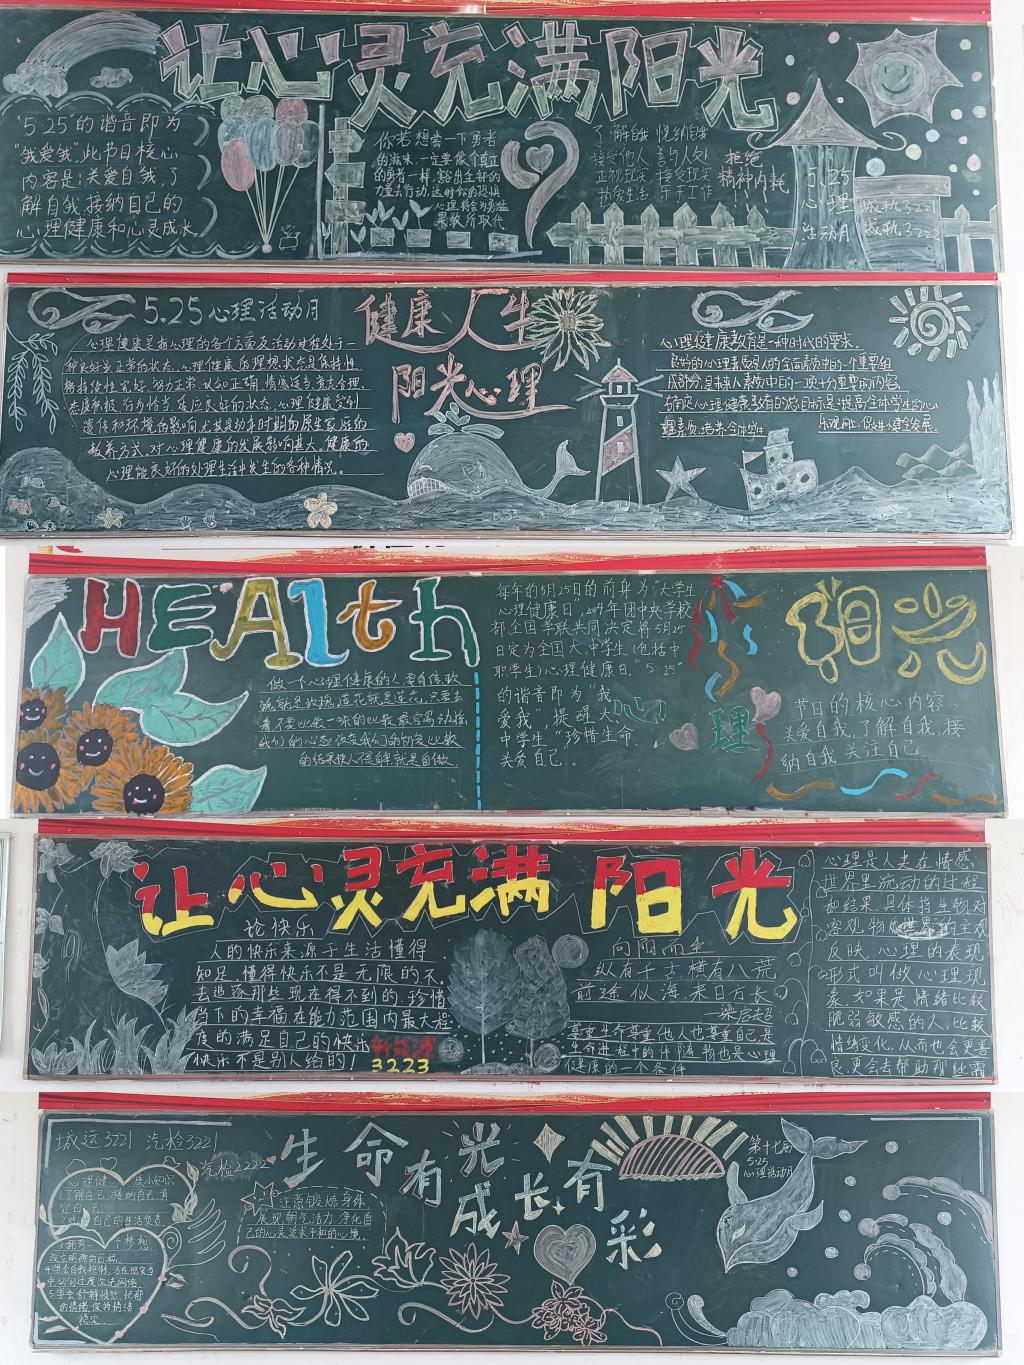 让心灵充满阳光
"5·25"的谐音即为
"我爱我",此节日核心
内容是:关爱自我,了
解自我,接纳自己的
心理健康和心灵成长。
你若想尝一下勇者
的滋味,一定要像个真正
的勇者一样,豁出全部的
力量去行动,这时你的恐惧
心理将会为勇猛
果敢所取代
了解自我 悦纳自我
接受他人 善与人处
正视现实 接受现实
热爱生活 乐于工作
拒绝
精神内耗
5.25
心理
活动月
城轨3221
城轨3222
5.25心理活动月
心理健康是指心理的各个方面及活动过程处于一
种良好或正常的状态。心理健康的理想状态是保持性
格持续性完好、智力正常、认知正确、情感适当、意志合理、
态度积极、行为恰当、适应良好的状态。心理健康受到
遗传和环境的影响,尤其是幼年时期的原生家庭的
教养方式,对心理健康的发展影响甚大。健康的
心理能良好的处理生活中发生的各种情况。
健康人生
阳光心理
心理健康教育是一种时代的要求。
良好的心理素质是人的全面素质中的一个重要组
成部分,是未来人素质中的一项十分重要的内容,
确定心理健康教育的总目标是:提高全体学生的心
理素质,培养全体学生
乐观向上,促进人健全发展。
HEAlth
做一下心理健康的人要自信,玫
瑰就是玫瑰,莲花就是莲花,只要去
看,不要比较,一味的比较最容易动摇
我们的心态,改变我们的初衷,比较
的结果使人不是自卑就是自傲
每年的5月25日的前身为"大学生
心理健康日",2004年团中央学校
部全国学联共同决定将5月25
日定为全国大、中学生(包括中
职学生)心理健康日,"5·25"
的谐音即为"我
爱我",提醒大、
中学生,"珍惜生命、
关爱自己。
心理
阳光
节日的核心内容:
关爱自我,了解自我,接
纳自我,关注自己
让心灵充满阳光
论快乐
人的快乐来源于生活懂得
知足,懂得快乐不是无限的,不
去追逐那些现在得不到的,珍惜
当下的幸福,在能力范围内最大程
度的满足自己的快乐
快乐不是别人给的!
新能源
3223
向阳而生
纵有千古,横有八荒
前途似海,来日方长
——梁启超
尊重生命尊重他人也尊重自己,是
生命进程中的伴随物,也是心理
健康的一个条件
心理是人走在情感、
世界里流动的过程
和结果,具体指生物对
客观物质世界的主观
反映,心理的表现
形式叫做心理现
象,如果是情绪比较
脆弱敏感的人,比较
情绪变化,从而也会更善
良,更会去帮助那些需
城运3221 汽检3221
汽检2222
心理健康小知识
1.了解自己,接纳自己,肯
定自己。
2.对自己的生活负责
3.拥有一个梦想
设立明确的目标。
4.学会自我控制,活在现实当
中,切勿过度沉迷网络。
5.学会纾解愤怒、忧郁
的情绪,保持情绪
稳定。
生命有光
成长有彩
注意锻炼身体
展现朝气活力,净化自
己的心灵追求平和的心境
第十七届
5·25
心理活动月